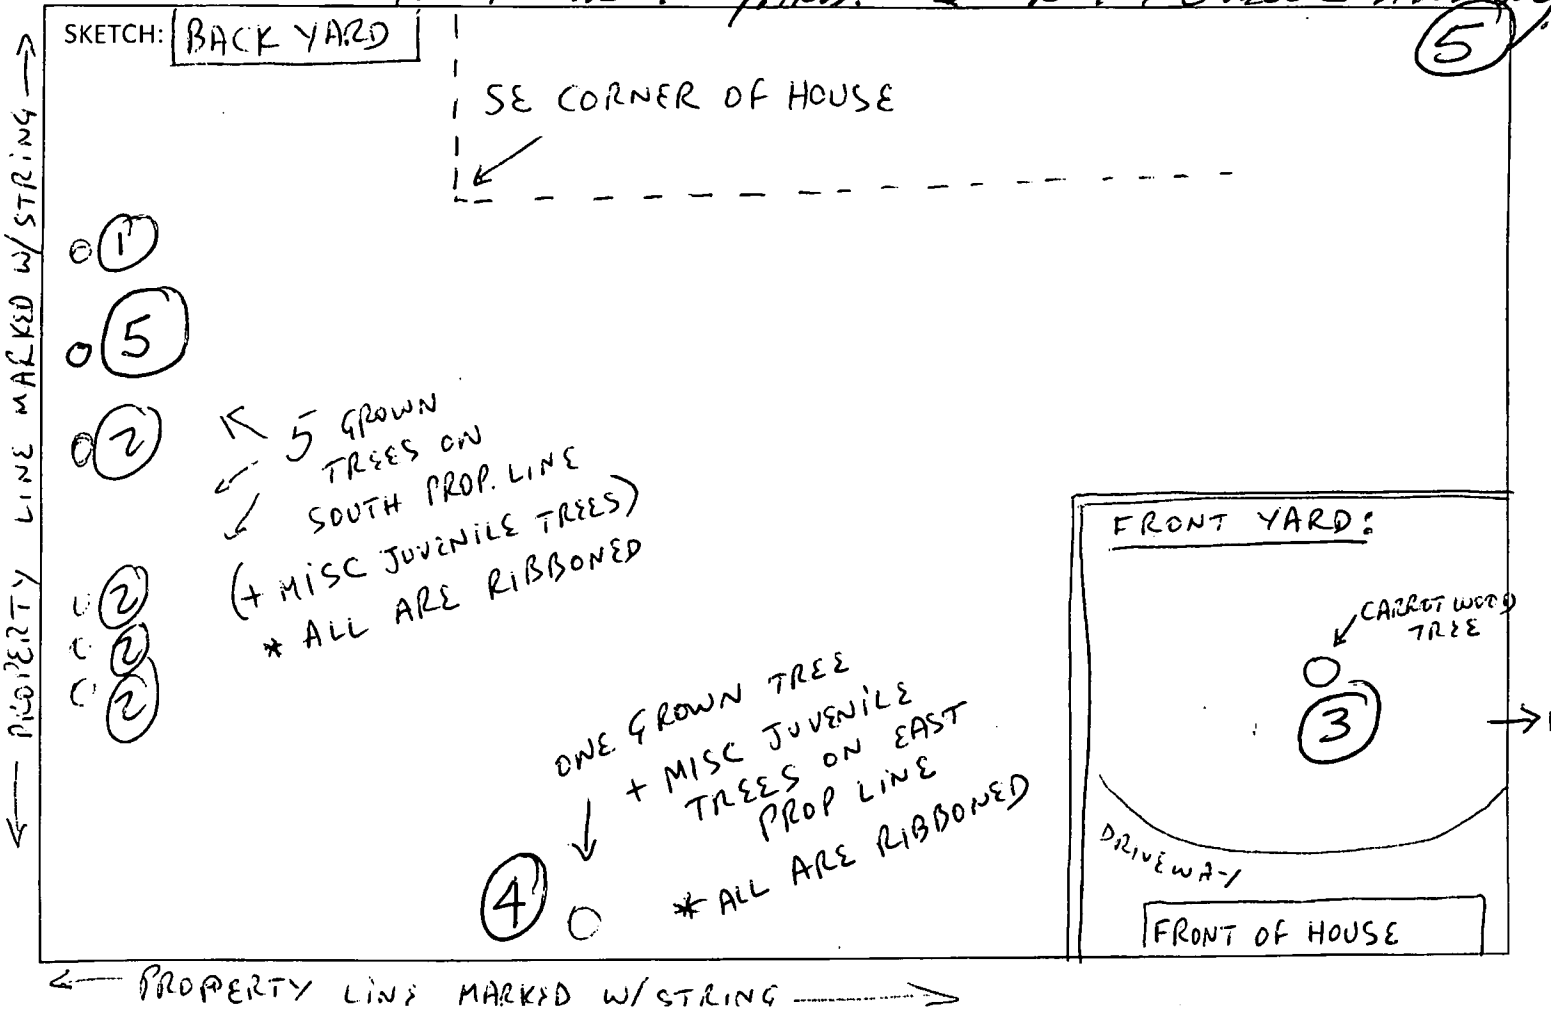 SKETCH: BACK YARD
5
SE CORNER OF HOUSE
PROPERTY LINE MARKED W/STRING
1
5
2
5 GROWN
TREES ON
SOUTH PROP. LINE
(+ MISC JUVENILE TREES)
* ALL ARE RIBBONED
2
2
2
ONE GROWN TREE
+ MISC JUVENILE
TREES ON EAST
PROP LINE
* ALL ARE RIBBONED
4
FRONT YARD:
CARROTWOOD
TREE
3
DRIVEWAY
FRONT OF HOUSE
PROPERTY LINE MARKED W/STRING